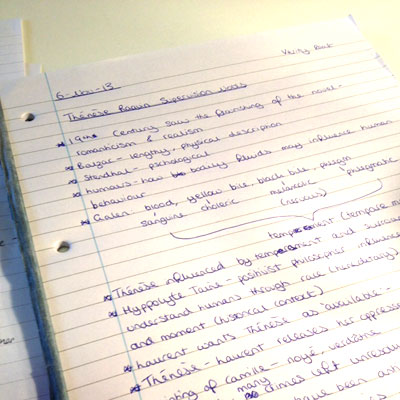 Verity
6-Nov-13
Thérèse Raquin Supervision Notes
* 19th Century saw the flourishing of the novel -
romanticism & realism
* Balzac - lengthy, physical description
* Stendhal - pschological
* humours - how bodily fluids may influence human
behaviour
* Galen blood, yellow bile, black bile, phlegm
sanguine choleric melancolic phlegmatic
(nervous)
temperement
* Thérèse influenced by temperement and
* Hyppolyte Taine - positivist philosopher
understand humans through race (hereditary)
and moment (historical context)
* Laurent wants Thérèse as 'available' -
* Thérèse - Laurent releases her oppressed
of Camille - noyé, verdâtre
many crimes left
have been